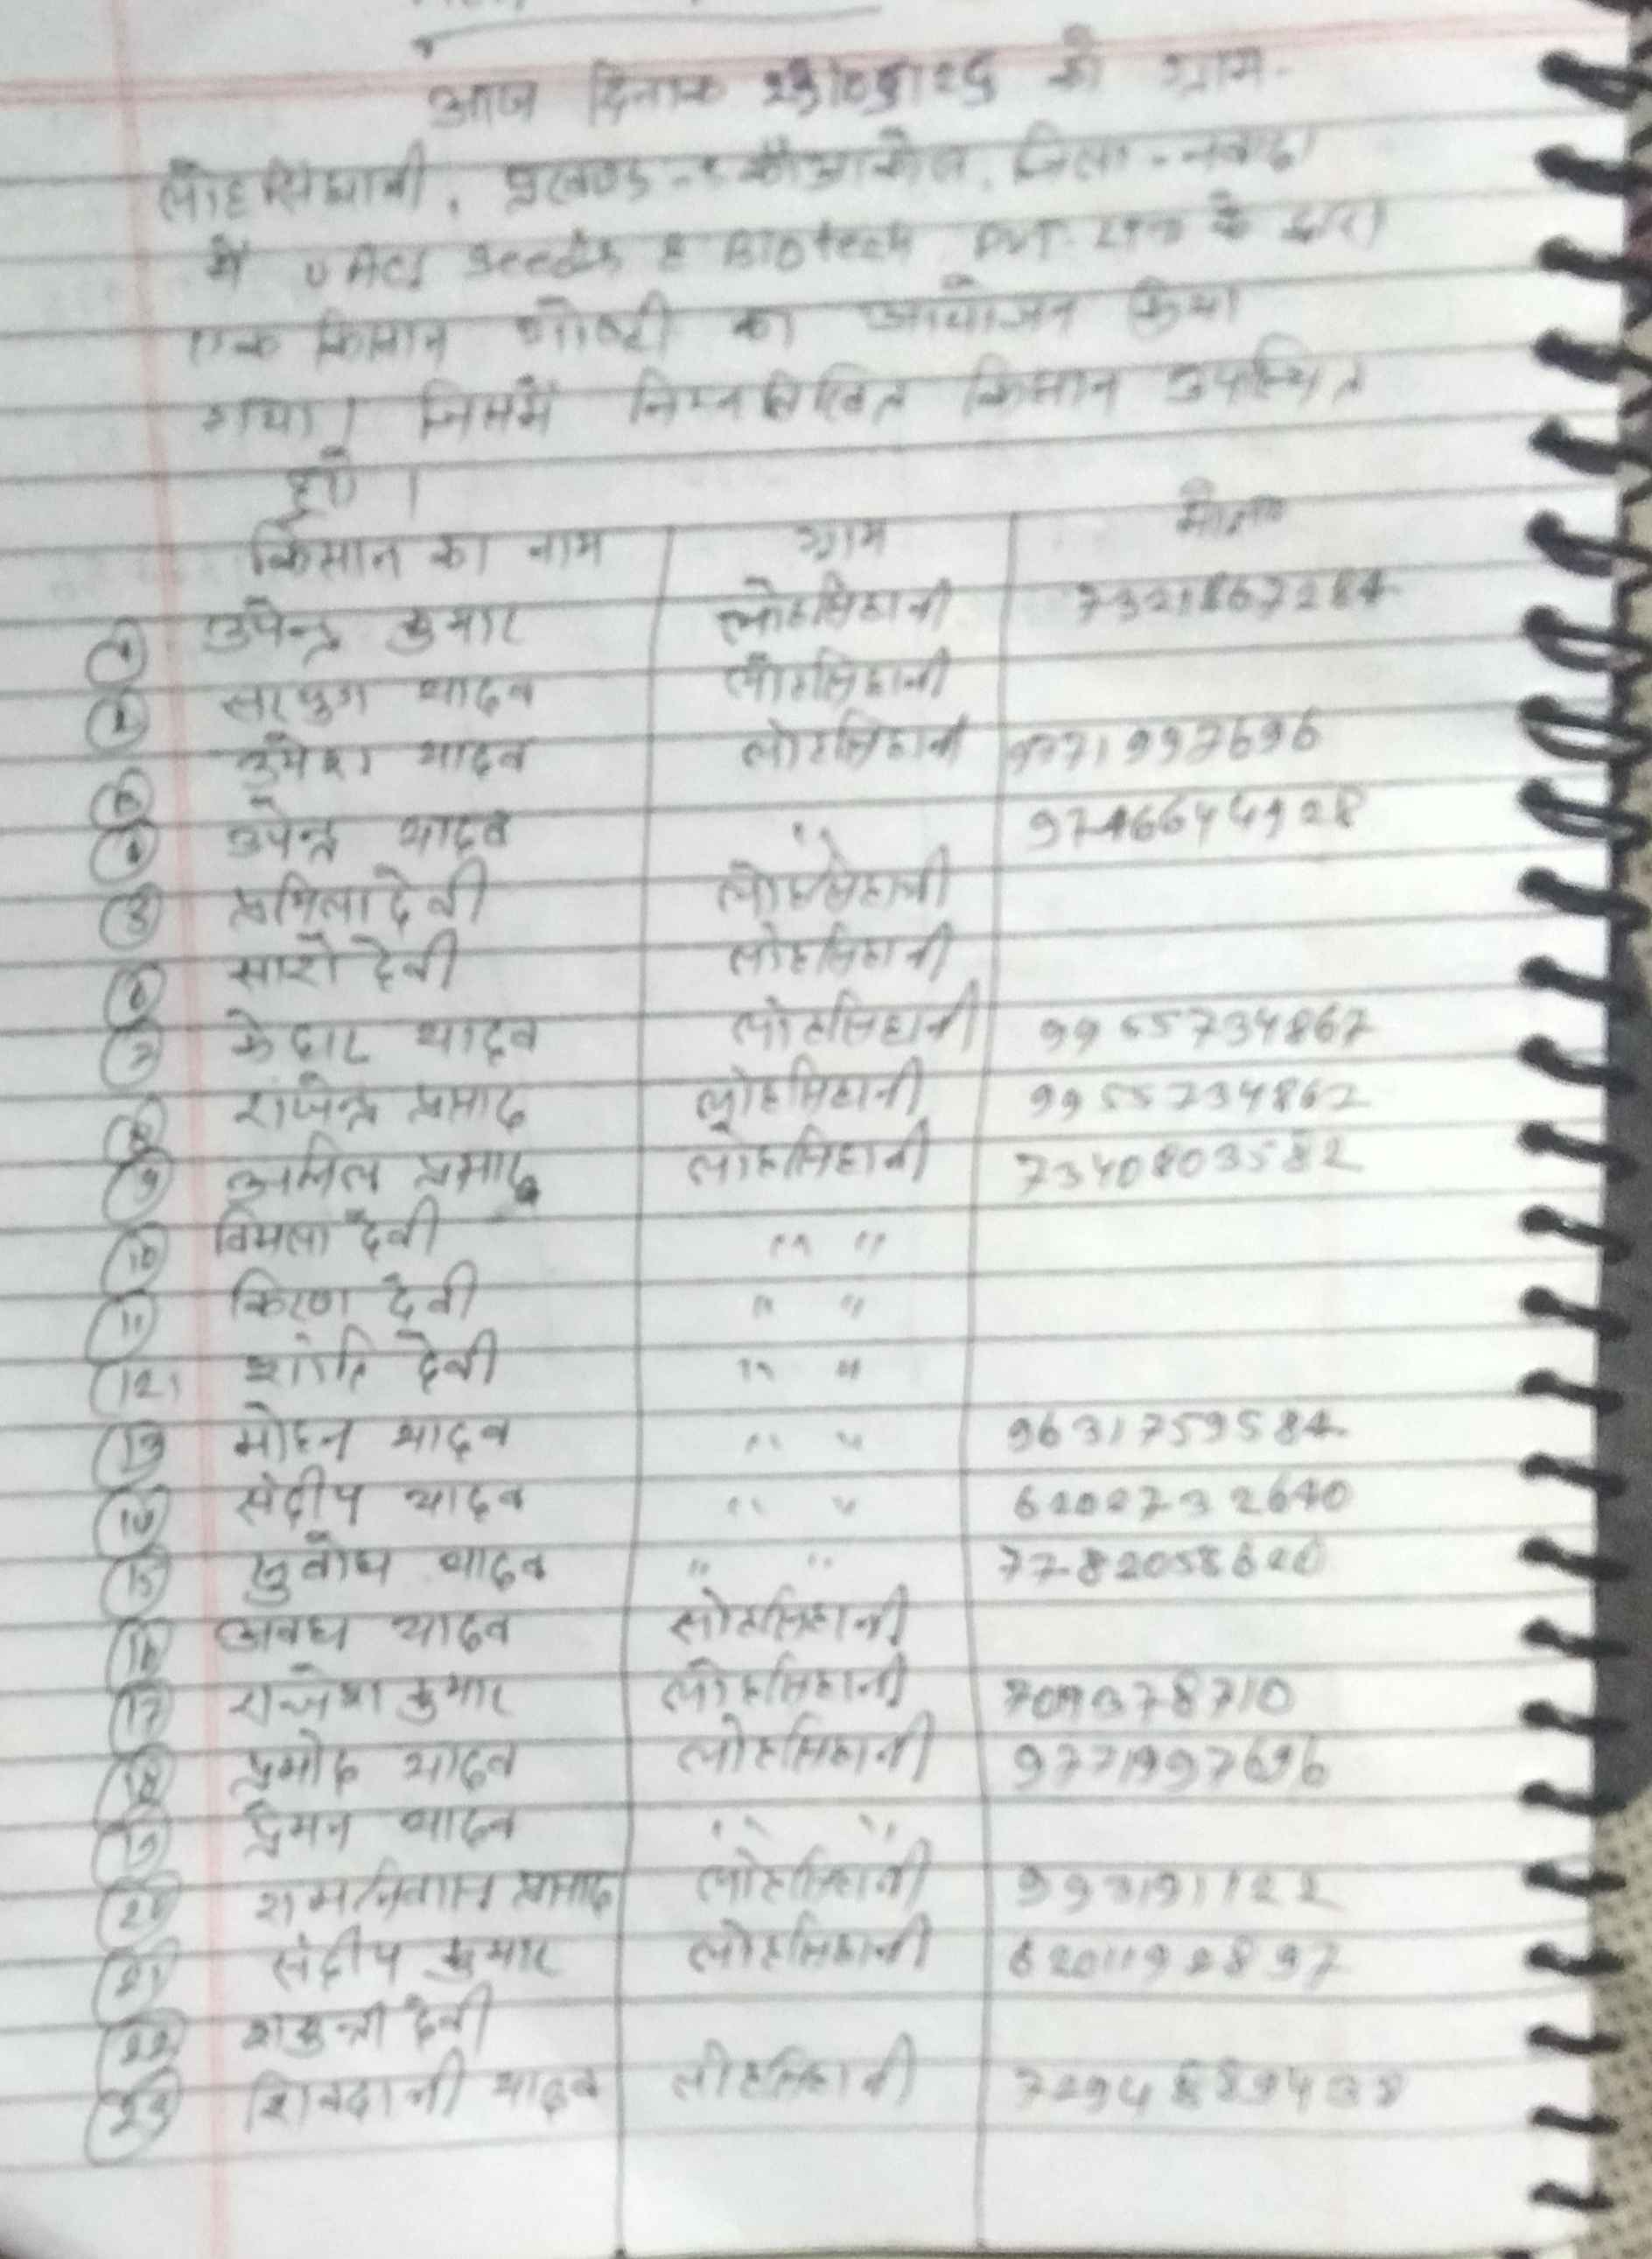 आज दिनांक को ग्राम-
लोहसिंघानी, प्रखण्ड - कौआकोल, जिला - नवादा
में Seeds & Biotech Pvt. Ltd के द्वारा
एक किसान गोष्टी का आयोजन किया
गया। जिसमें निम्नलिखित किसान उपस्थित
हुए।
किसान का नाम ग्राम
1 उपेन्द्र कुमार लोहसिहानी 7321867284
2 सरयुग यादव लोहसिहानी
3 उमेश यादव लोहसिहानी 9771997696
4 उपेन्द्र यादव " 9746644928
5 प्रमिला देवी लोहसिहानी
6 सारो देवी लोहसिहानी
7 केदार यादव लोहसिहानी 9955734867
8 राजेन्द्र प्रसाद लोहसिहानी 9955734867
9 अनिल प्रसाद लोहसिहानी 7340803582
10 विमला देवी " "
11 किरण देवी " "
12 शांति देवी " "
13 मोहन यादव " " 9631759584
14 संदीप यादव " " 6202732640
15 सुबोध यादव " " 7782058620
16 अवध यादव लोहसिहानी
17 राजेश कुमार लोहसिहानी
18 प्रमोद यादव लोहसिहानी 9771997696
19 यादव " "
20 रामनिवास प्रसाद लोहसिहानी 993191122
21 संदीप कुमार लोहसिहानी 6201192897
22 देवी
23 शिवदानी यादव लोहसिहानी